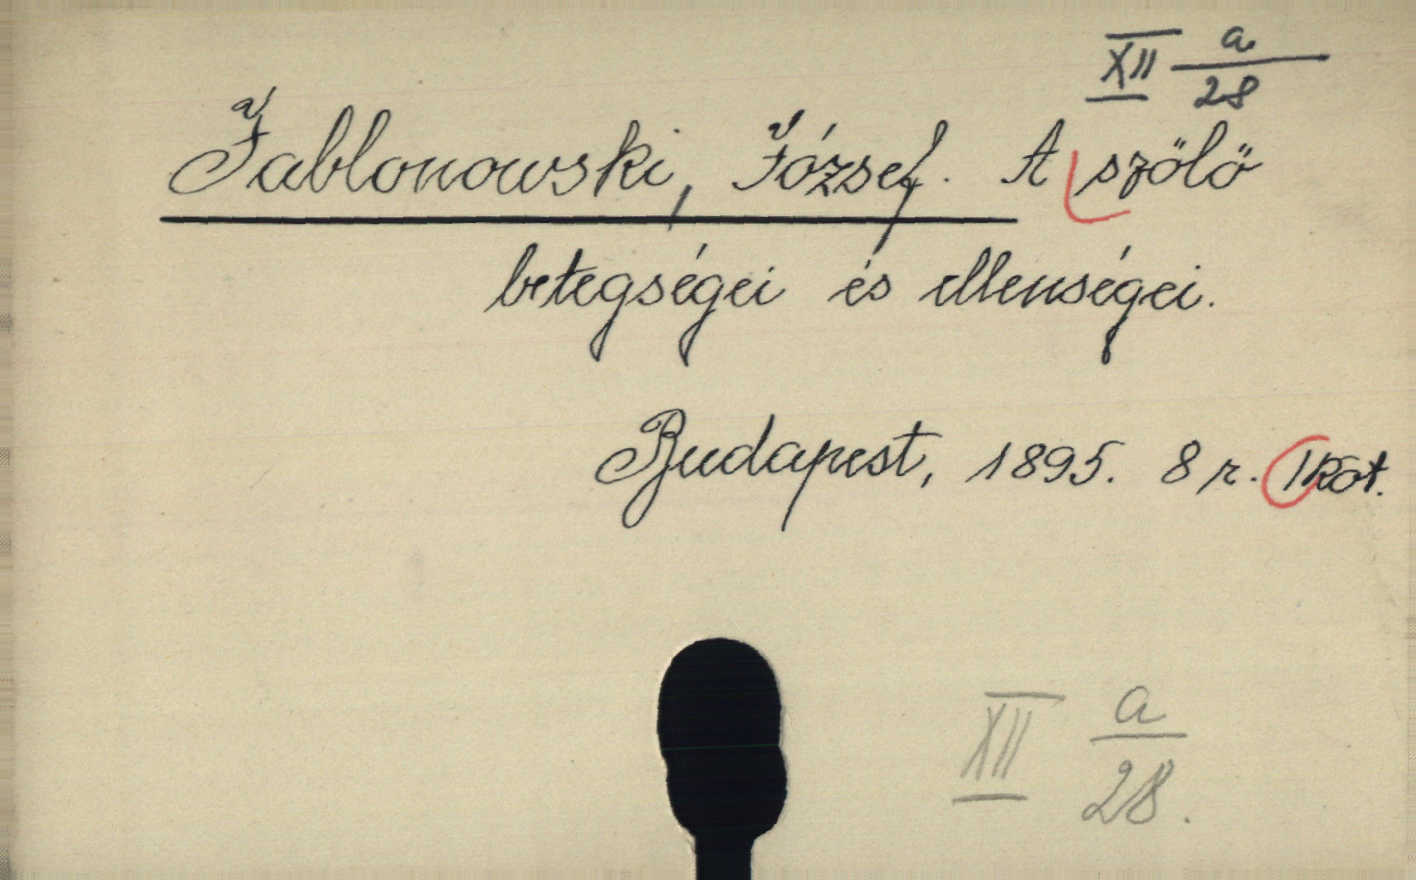 XII a/28
Jablonowski, József. A szölö
betegségei és ellenségei.
Budapest, 1895. 8 r. 1 köt.
XII a/28.